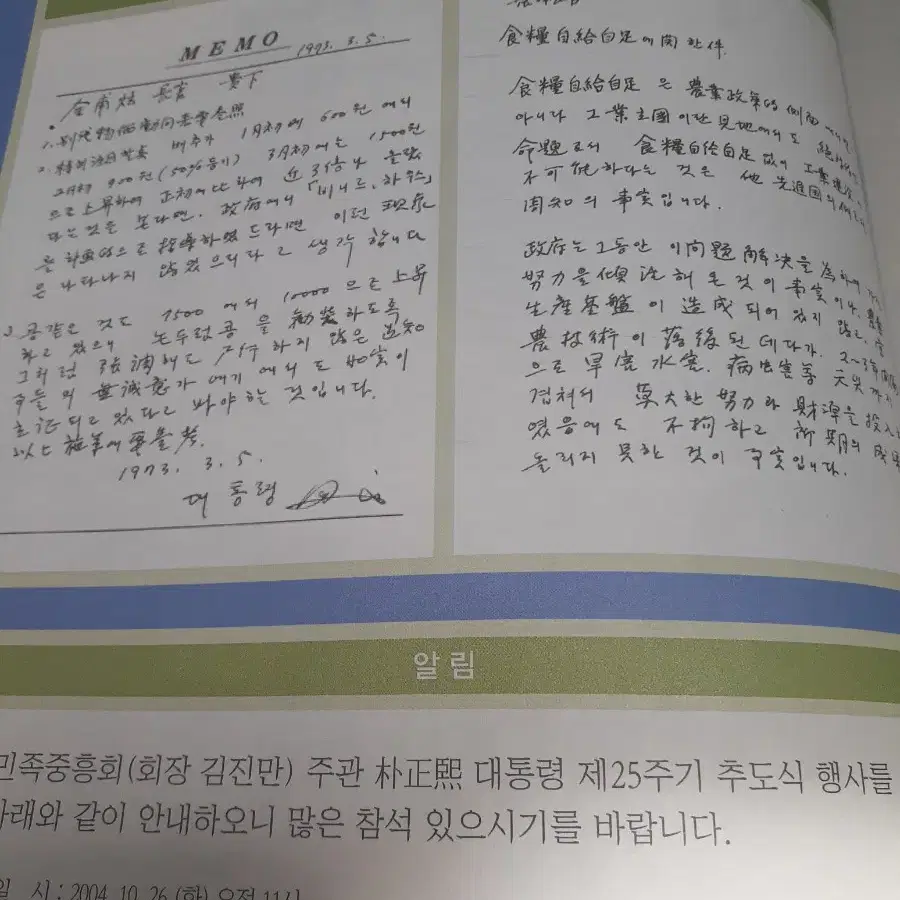 MEMO 1973. 3. 5.
金甫炫 長官 貴下
1. 別紙物価動向表 参照
2. 特히 注目할 点 배추가 1月初에 600원에서
2月初 900원(50%등이) 3月初에는 1500원
으로 上昇하여 正初에 比하여 近 3倍나 올랐
다는 것을 본다면, 政府에서 「비니루, 하우스」
를 計画的으로 指導하였드라면 이런 現象
은 나타나지 않았으리다고 생각합니다
콩같은 것도 7500에서 10000으로 上昇
하고 있으며 논두렁콩을 勧奨하도록
그처럼 強調해도 하지 않은 道知
事들의 無誠意가 여기에서도 如実이
立証되고 있다고 봐야 하는 것입니다.
以上 施策에 参考.
1973. 3. 5.
대통령
食糧自給自足에 関한 件.
食糧自給自足은 農業政策的 側面에서만
아니다 工業立國이란 見地에서도
命題로서 食糧自給自足 없이 工業
不可能하다는 것은 他 先進国의 例
周知의 事実입니다.
政府는 그동안 이 問題 解決을 為하여
努力을 傾注해 온 것이 事実이나,
生産基盤이 造成되어 있지 않고,
農技術이 落後된 데다가, 2~3年
으로 旱害 水害, 病虫害等 天災까지
겹쳐서 莫大한 努力과 財源을 投入
였음에도 不拘하고 所期의 成果
올리지 못한 것이 事実입니다.
알 림
민족중흥회(회장 김진만) 주관 朴正熙 대통령 제25주기 추도식 행사를
아래와 같이 안내하오니 많은 참석 있으시기를 바랍니다.
일 시 : 2004. 10. 26 (화) 오전 11시